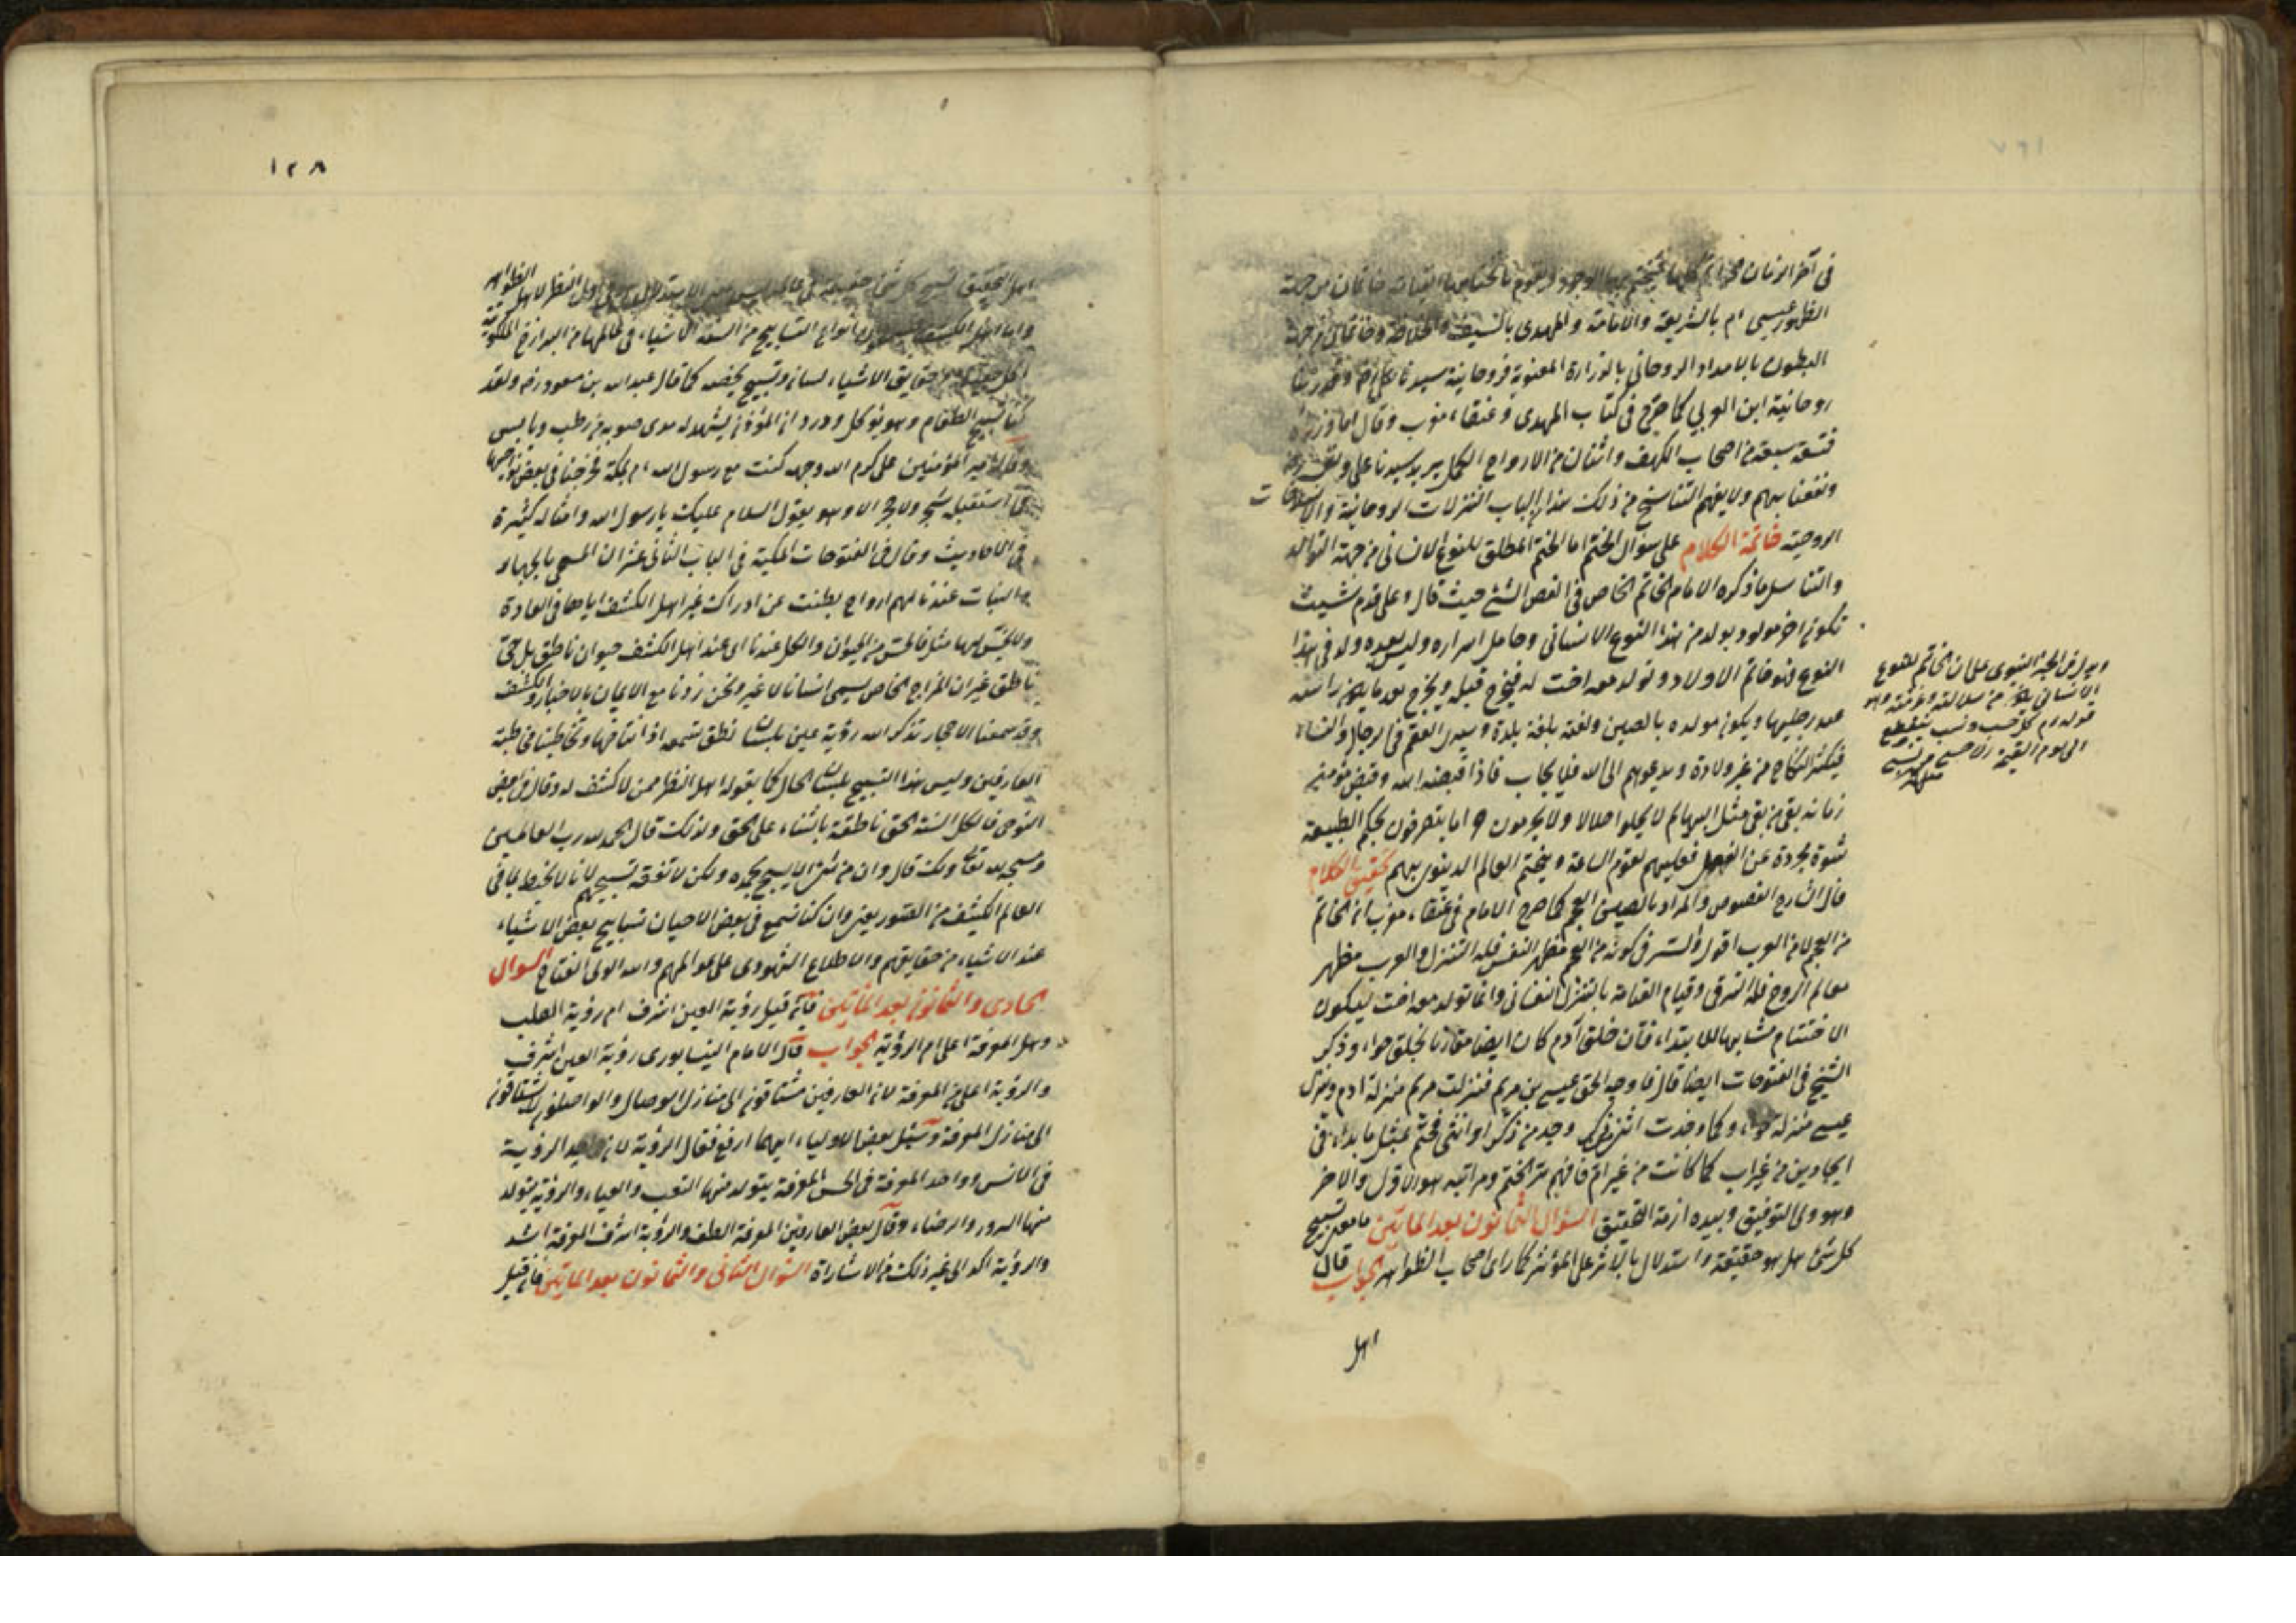 في آخر الزمان
الظهور عيسى ام بالشريعة والامامة والمهدى بالسيف والخلافة وخاتمان من جهة
البطون بالامداد الروحاني بالوزارة المعنوية فروحانية سيدنا على رضه
روحانية ابن العربي كما صرح في كتاب المهدى وعنقاء مغرب وقال اما وزراؤه
فتسعة سبعة من اصحاب الكهف واثنان من الارواح الكمل يريد سيدنا على
ونفعنا بهم ولا يفهم التناسخ من ذلك هذا الباب التنزلات الروحانية
الروحية خاتمة الكلام على سؤال الختم اما الختم المطلق للنوع الانساني من جهة التوالد
والتناسل ما ذكره الامام الخاتم الخاص في الفص الشيثي حيث قال وعلى قدم شيث
تكون آخر مولود يولد من هذا النوع الانساني وحامل اسراره وليس بعده ولد في هذا
النوع فهو خاتم الاولاد وتولد معه اخت له فتخرج قبله ويخرج بعدها يكون راسه
عند رجليها ويكون مولده بالصين ولغته بلغة بلده ويسرى العقم في الرجال والنساء
فيكثر النكاح من غير ولادة ويدعوهم الى الله فلا يجاب فاذا قبضه الله وقبض مؤمني
زمانه بقى من بقى مثل البهايم لا يحلوا حلالا ولا يحرمون حراما يتصرفون بحكم الطبيعة
شهوة مجردة عن العقل فعليهم تقوم الساعة ويختم العالم الدنيوى بهم تحقيق الكلام
قال شارح الفصوص والمراد بالصين العجم كما صرح الامام في عنقاء مغرب ان الخاتم
من العجم لا من العرب اقول والسر في كونه من العجم مظهر النفس فله التنزل والعرب مظهر
عالم الروح فله الترقى وقيام القيامة بالتنزل النفساني وانما تولد معه اخت ليكون
الاختتام مشابها للابتداء فان خلق آدم كان ايضا مقارنا بخلق حواء وذكر
الشيخ في الفتوحات ايضا قال فاوجد الحق عيسى بن مريم فنزلت مريم منزلة ادم ونزل
عيسى منزلة حواء وكما وجدت انثى من ذكر وجد ذكر من انثى فختم بمثل ما بداء في
ايجاد ابن من غير اب كما كانت من غير ام فافهم سر الختم ومراتبه هو الاول والاخر
وهو ولى التوفيق وبيده ازمة التحقيق السؤال الثمانون بعد المائتين ما معنى تسبيح
كل شئ هل هو حقيقة واستدلال بالاثر على المؤثر كما راى اصحاب الظواهر الجواب قال
اهل
ويدل في الختم النبوى على ان الخاتم للنوع
الانساني يكون من سلالته وعترته وهو
قوله م كل حسب ونسب ينقطع
الى يوم القيمة الا حسبي ونسبي
١٢٨
اهل التحقيق تسبيح كل شئ حقيقة في عالمه
واما اهل الكشف انواع التسابيح من السنة الاشياء في عالمها من البرازخ الملكوتية
حقايق الاشياء لسان وتسبيح يخصه كما قال عبد الله بن مسعود رضه ولقد
كنا نسمع تسبيح الطعام وهو يؤكل وورد ان المؤذن يشهد له مدى صوته من رطب ويابس
وقال امير المؤمنين على كرم الله وجهه كنت مع رسول الله م بمكة فخرجنا في بعض نواحيها
فما استقبله شجر ولا حجر الا وهو يقول السلام عليك يا رسول الله وامثاله كثيرة
في الاحاديث وقال في الفتوحات المكية في الباب الثاني عشر ان المسمى بالجماد
والنبات عندنا لهم ارواح بطنت عن ادراك غير اهل الكشف اياها في العادة
ولا يحس بها مثل ما يحس من الحيوان والكل عندنا اى عند اهل الكشف حيوان ناطق بل حى
ناطق غير ان المزاج الخاص يسمى انسانا لا غير ونحن زدنا مع الايمان بالاخبار الكشف
وقد سمعنا الاحجار تذكر الله رؤية عين بلسان نطق تسمعه اذاننا منها وتخاطبنا مخاطبة
العارفين وليس هذا التسبيح بلسان الحال كما يقوله اهل النظر ممن لا كشف له وقال في الفص
النوحى فالكل السنة الحق ناطقة بالثناء على الحق ولذلك قال الحمد لله رب العالمين
قال وان من شئ الا يسبح بحمده ولكن لا تفقه تسبيحهم لانا لا نحيط بما في
العالم الكثيف من الصور يعني وان كنا نسمع في بعض الاحيان تسابيح بعض الاشياء
عند الاشياء من حقايقهم والاطلاع الشهودى على عوالمهم والله المولى الفتاح السوال
الحادى والثمانون بعد المائتين فان قيل رؤية العين اشرف ام رؤية القلب
وهل المعرفة اعلى ام الرؤية الجواب قال الامام النيسابورى رؤية العين اشرف
والرؤية اعلى من المعرفة لان العارفين مشتاقون الى منازل الوصال والواصلون لا يشتاقون
الى منازل المعرفة وسئل بعض الاولياء ايهما ارفع فقال الرؤية لان واجد الرؤية
في الانس وواجد المعرفة في الحس المعرفة يتولد منها التعب والعياء والرؤية يتولد
منها السرور والرضاء وقال بعض العارفين المعرفة الطف والرؤية اشرف المعرفة اشد
والرؤية اكد الى غير ذلك من الاشارات السؤال الثاني والثمانون بعد المائتين فان قيل